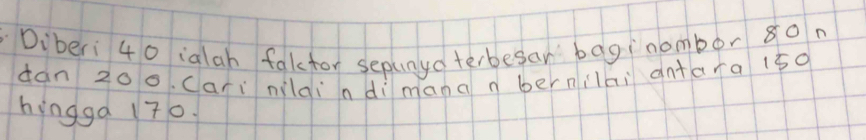 Diberi 40 ialah faktor sepunya terbesar bagi nombor 80 n
dan 200. Cari nilai n di mana n bernilai antara 150
hingga 170.